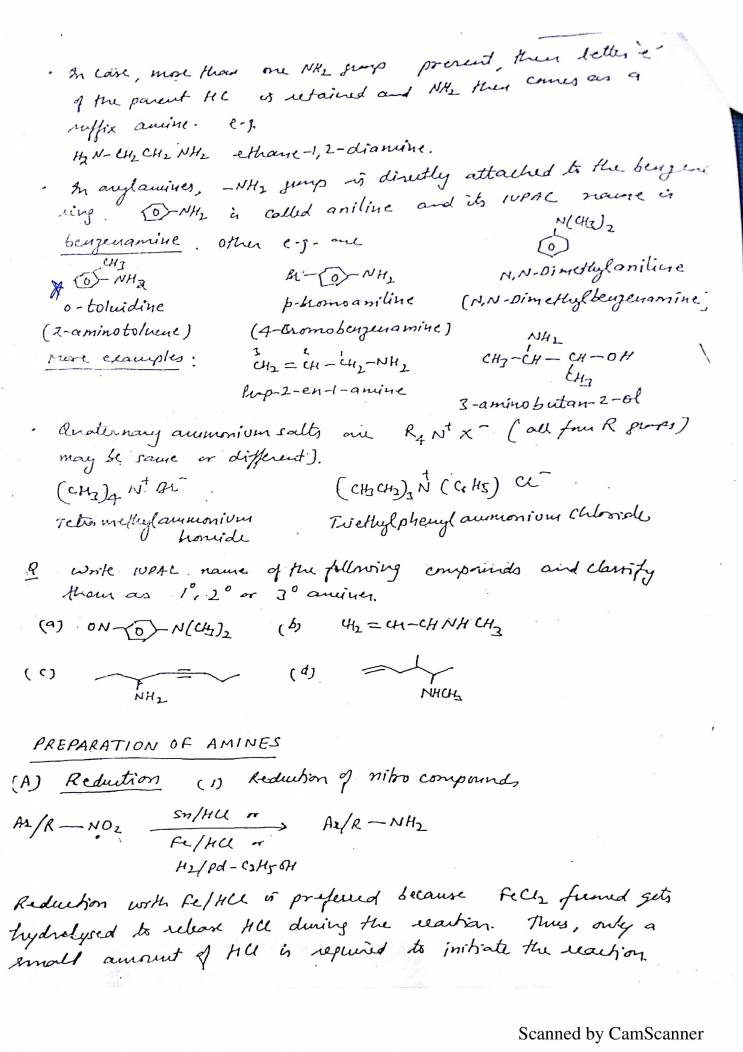 · In case, more than one NH2 group present, then letter 'e'
of the parent HC is retained and NH2 then comes as a
suffix amine. e.g.
H2N-CH2CH2NH2 ethane-1,2-diamine.
· In arylamines, -NH2 group is directly attached to the benzene
ring. -NH2 is called aniline and its IUPAC name is
benzenamine. Other e-g- are
N(CH3)2
CH3
-NH2 Br- -NH2 N,N-Dimethylaniline
o-toluidine p-bromoaniline (N,N-Dimethylbenzenamine)
(2-aminotoluene) (4-Bromobenzenamine)
More examples: CH2 = CH - CH2 - NH2
3 2 1
NH2
CH3 - CH - CH - OH
CH3
Prop-2-en-1-amine 3-aminobutan-2-ol
· Quaternary ammonium salts are R4N+X- (all four R groups)
may be same or different).
(CH3)4 N+ Br- (CH3CH2)3 N+ (C6H5) Cl-
Tetramethylammonium bromide Triethylphenyl ammonium Chloride
Q Write IUPAC name of the following compounds and classify
them as 1°, 2° or 3° amines.
(a) ON- -N(CH3)2 (b) CH2 = CH - CH NH CH3
(c) NH2 (d) NHCH3
PREPARATION OF AMINES
(A) Reduction (1) Reduction of nitro compounds
Ar/R — NO2 Sn/HCl or Ar/R — NH2
Fe/HCl or
H2/Pd - C2H5OH
Reduction with Fe/HCl is preferred because FeCl2 formed gets
hydrolysed to release HCl during the reaction. Thus, only a
small amount of HCl is required to initiate the reaction.
Scanned by CamScanner